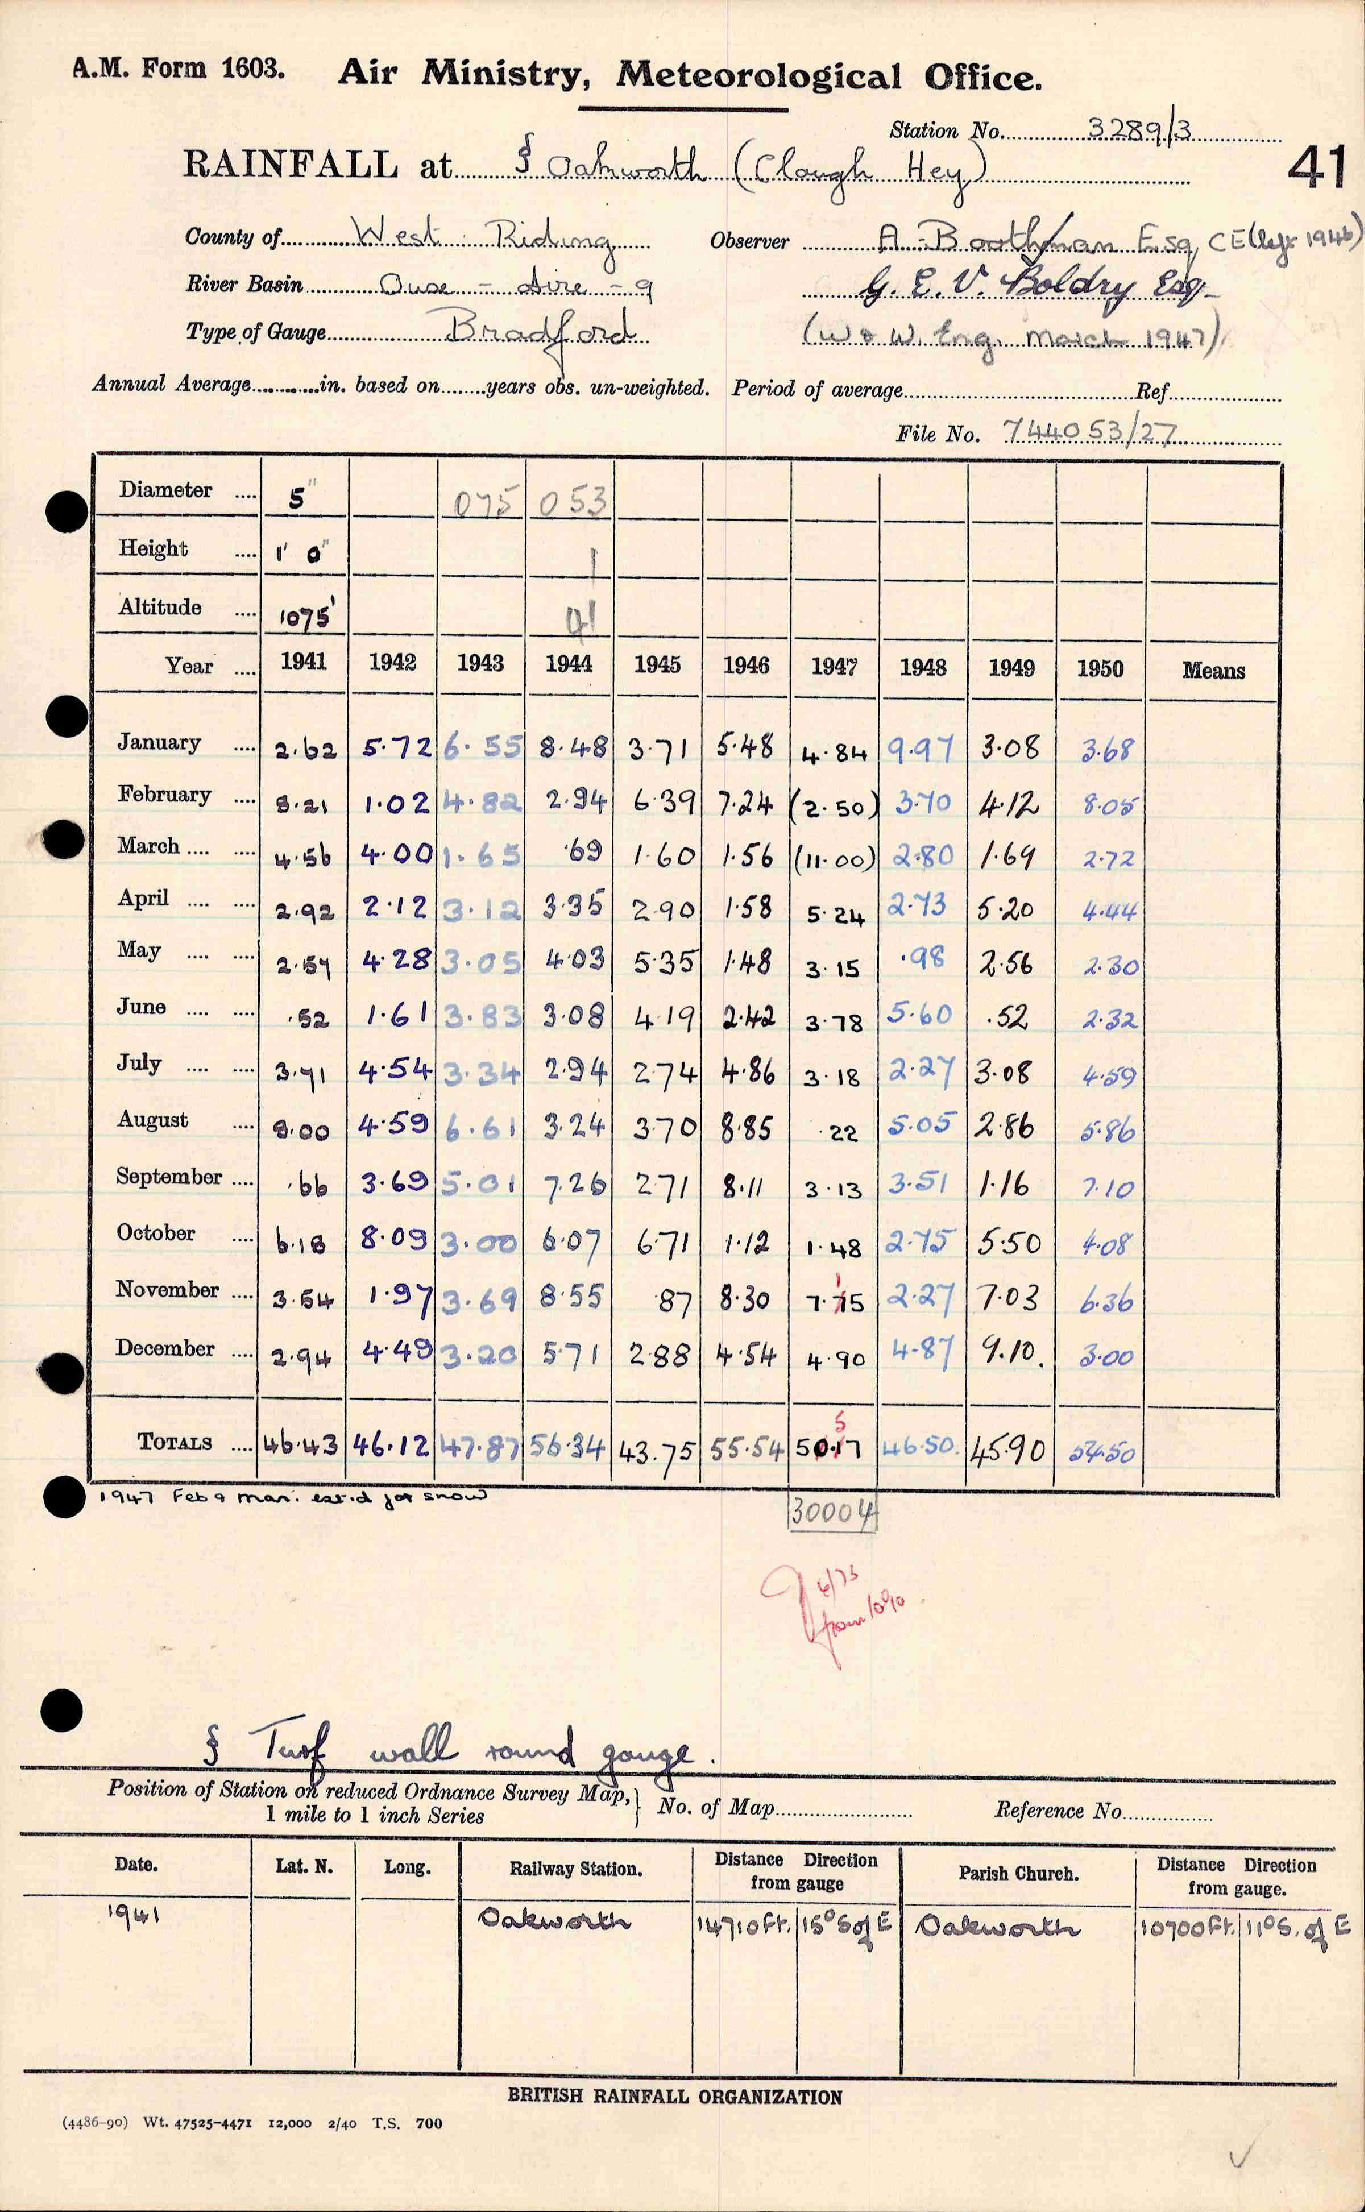 A.M. Form 1603. Air Ministry, Meteorological Office.
Station No. 3289/3
41
RAINFALL at § Oakworth (Clough Hey)
County of West Riding Observer A. Boothman Esq, C E (left 1946)
River Basin Ouse - Aire - 9 G. E. V. Boldry Esq
Type of Gauge Bradford (W & W. Eng. March 1947)
Annual Average in. based on years obs. un-weighted. Period of average Ref
File No. 744053/27
Diameter 5" 075 053
Height 1' 0" 1
Altitude 1075' 41
Year 1941 1942 1943 1944 1945 1946 1947 1948 1949 1950 Means
January 2.62 5.72 6.55 8.48 3.71 5.48 4.84 9.97 3.08 3.68
February 8.21 1.02 4.82 2.94 6.39 7.24 (2.50) 3.70 4.12 8.05
March 4.56 4.00 1.65 .69 1.60 1.56 (11.00) 2.80 1.69 2.72
April 2.92 2.12 3.12 3.35 2.90 1.58 5.24 2.73 5.20 4.44
May 2.57 4.28 3.05 4.03 5.35 1.48 3.15 .98 2.56 2.30
June .52 1.61 3.83 3.08 4.19 2.42 3.78 5.60 .52 2.32
July 3.71 4.54 3.34 2.94 2.74 4.86 3.18 2.27 3.08 4.59
August 8.00 4.59 6.61 3.24 3.70 8.85 .22 5.05 2.86 5.86
September .66 3.69 5.01 7.26 2.71 8.11 3.13 3.51 1.16 7.10
October 6.18 8.09 3.00 6.07 6.71 1.12 1.48 2.75 5.50 4.08
November 3.54 1.97 3.69 8.55 .87 8.30 7.15 2.27 7.03 6.36
December 2.94 4.49 3.20 5.71 2.88 4.54 4.90 4.87 9.10. 3.00
5
TOTALS 46.43 46.12 47.87 56.34 43.75 55.54 50.17 46.50. 45.90 54.50
1947 Feb & Mar: est.d for snow
30004
6/73
from 10%
§ Turf wall round gauge.
Position of Station on reduced Ordnance Survey Map, 1 mile to 1 inch Series } No. of Map Reference No.
Date. Lat. N. Long. Railway Station. Distance Direction from gauge Parish Church. Distance Direction from gauge.
1941 Oakworth 14710 Ft. 15° S of E Oakworth 10700 Ft. 11° S. of E
BRITISH RAINFALL ORGANIZATION
(4486-90) Wt. 47525-4471 12,000 2/40 T.S. 700